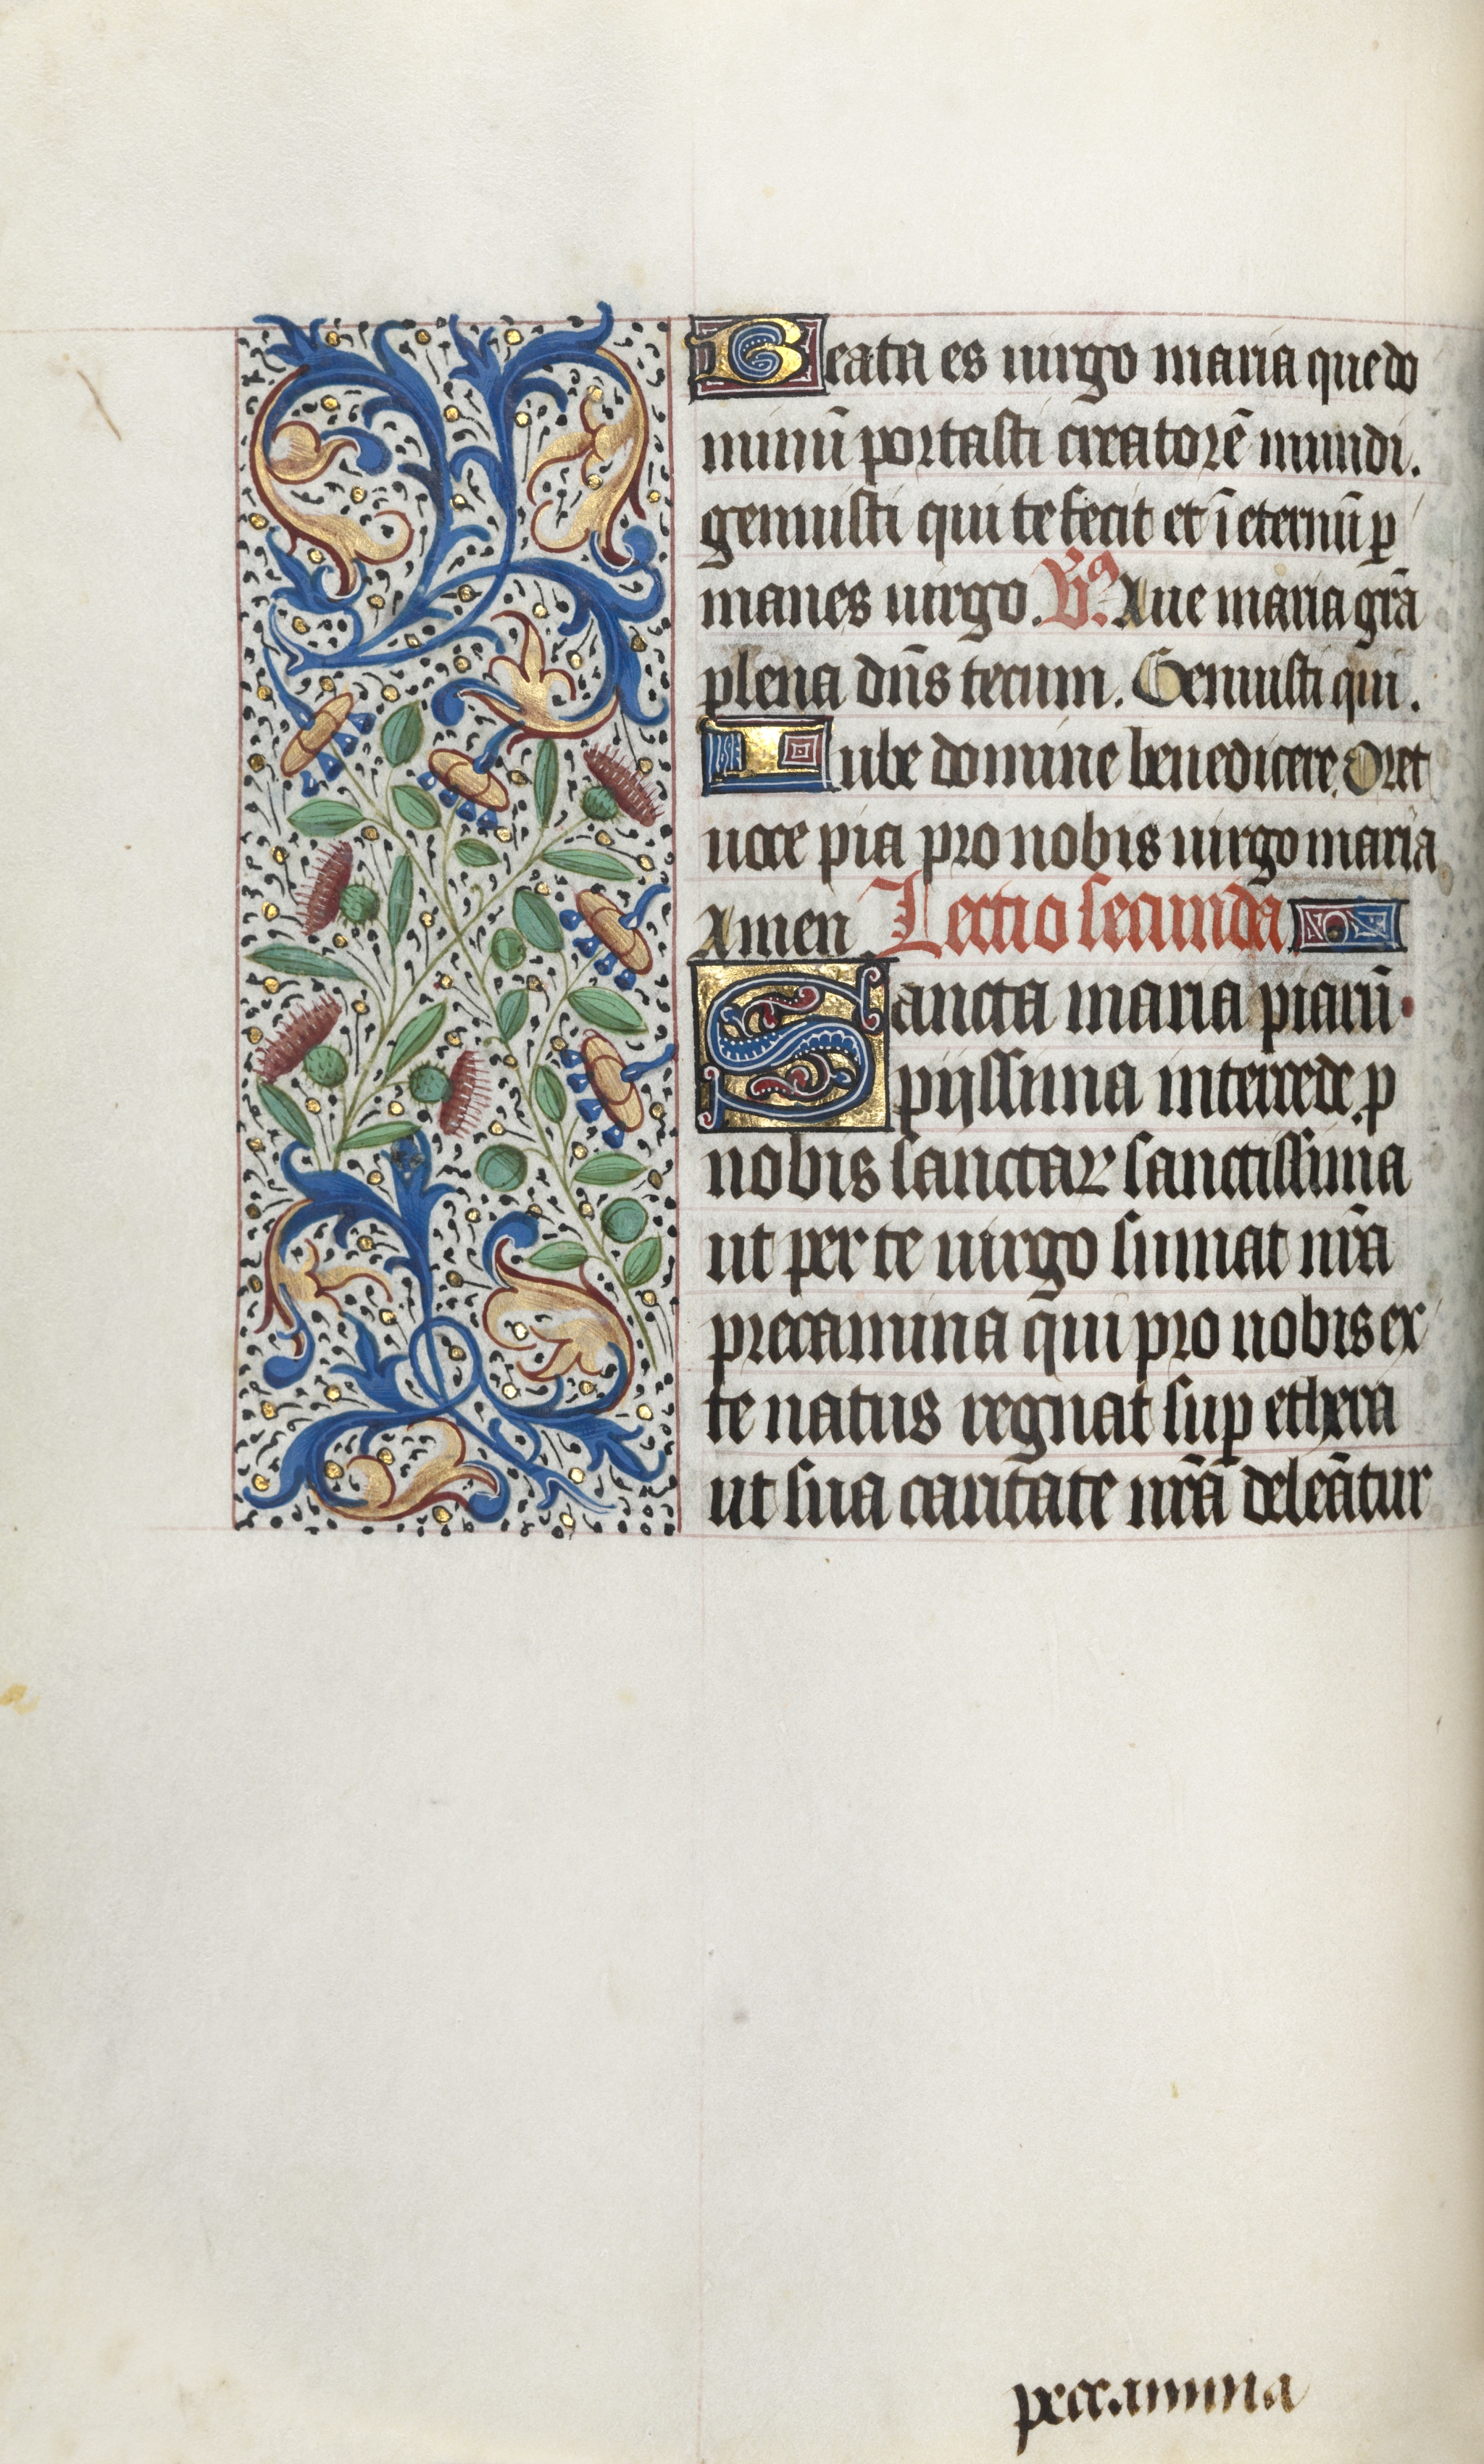 Beata es uirgo maria que do
minū portasti creatorē mundi.
genuisti qui te fecit et ī eternū ꝑ
manes uirgo. V̄s. Aue maria gr̄a
plena dn̄s tecum. Genuisti qui.
Iube domine benedicere. Oret
uoce pia pro nobis uirgo maria
Amen. Lectio secunda
Sancta maria piarū
pijssima intercede p̲
nobis sanctaꝝ sanctissima
ut per te uirgo sumat nr̄a
precamina qui pro nobis ex
te natus regnat suꝑ ethera
ut sua caritate nr̄a deleātur
peccamina